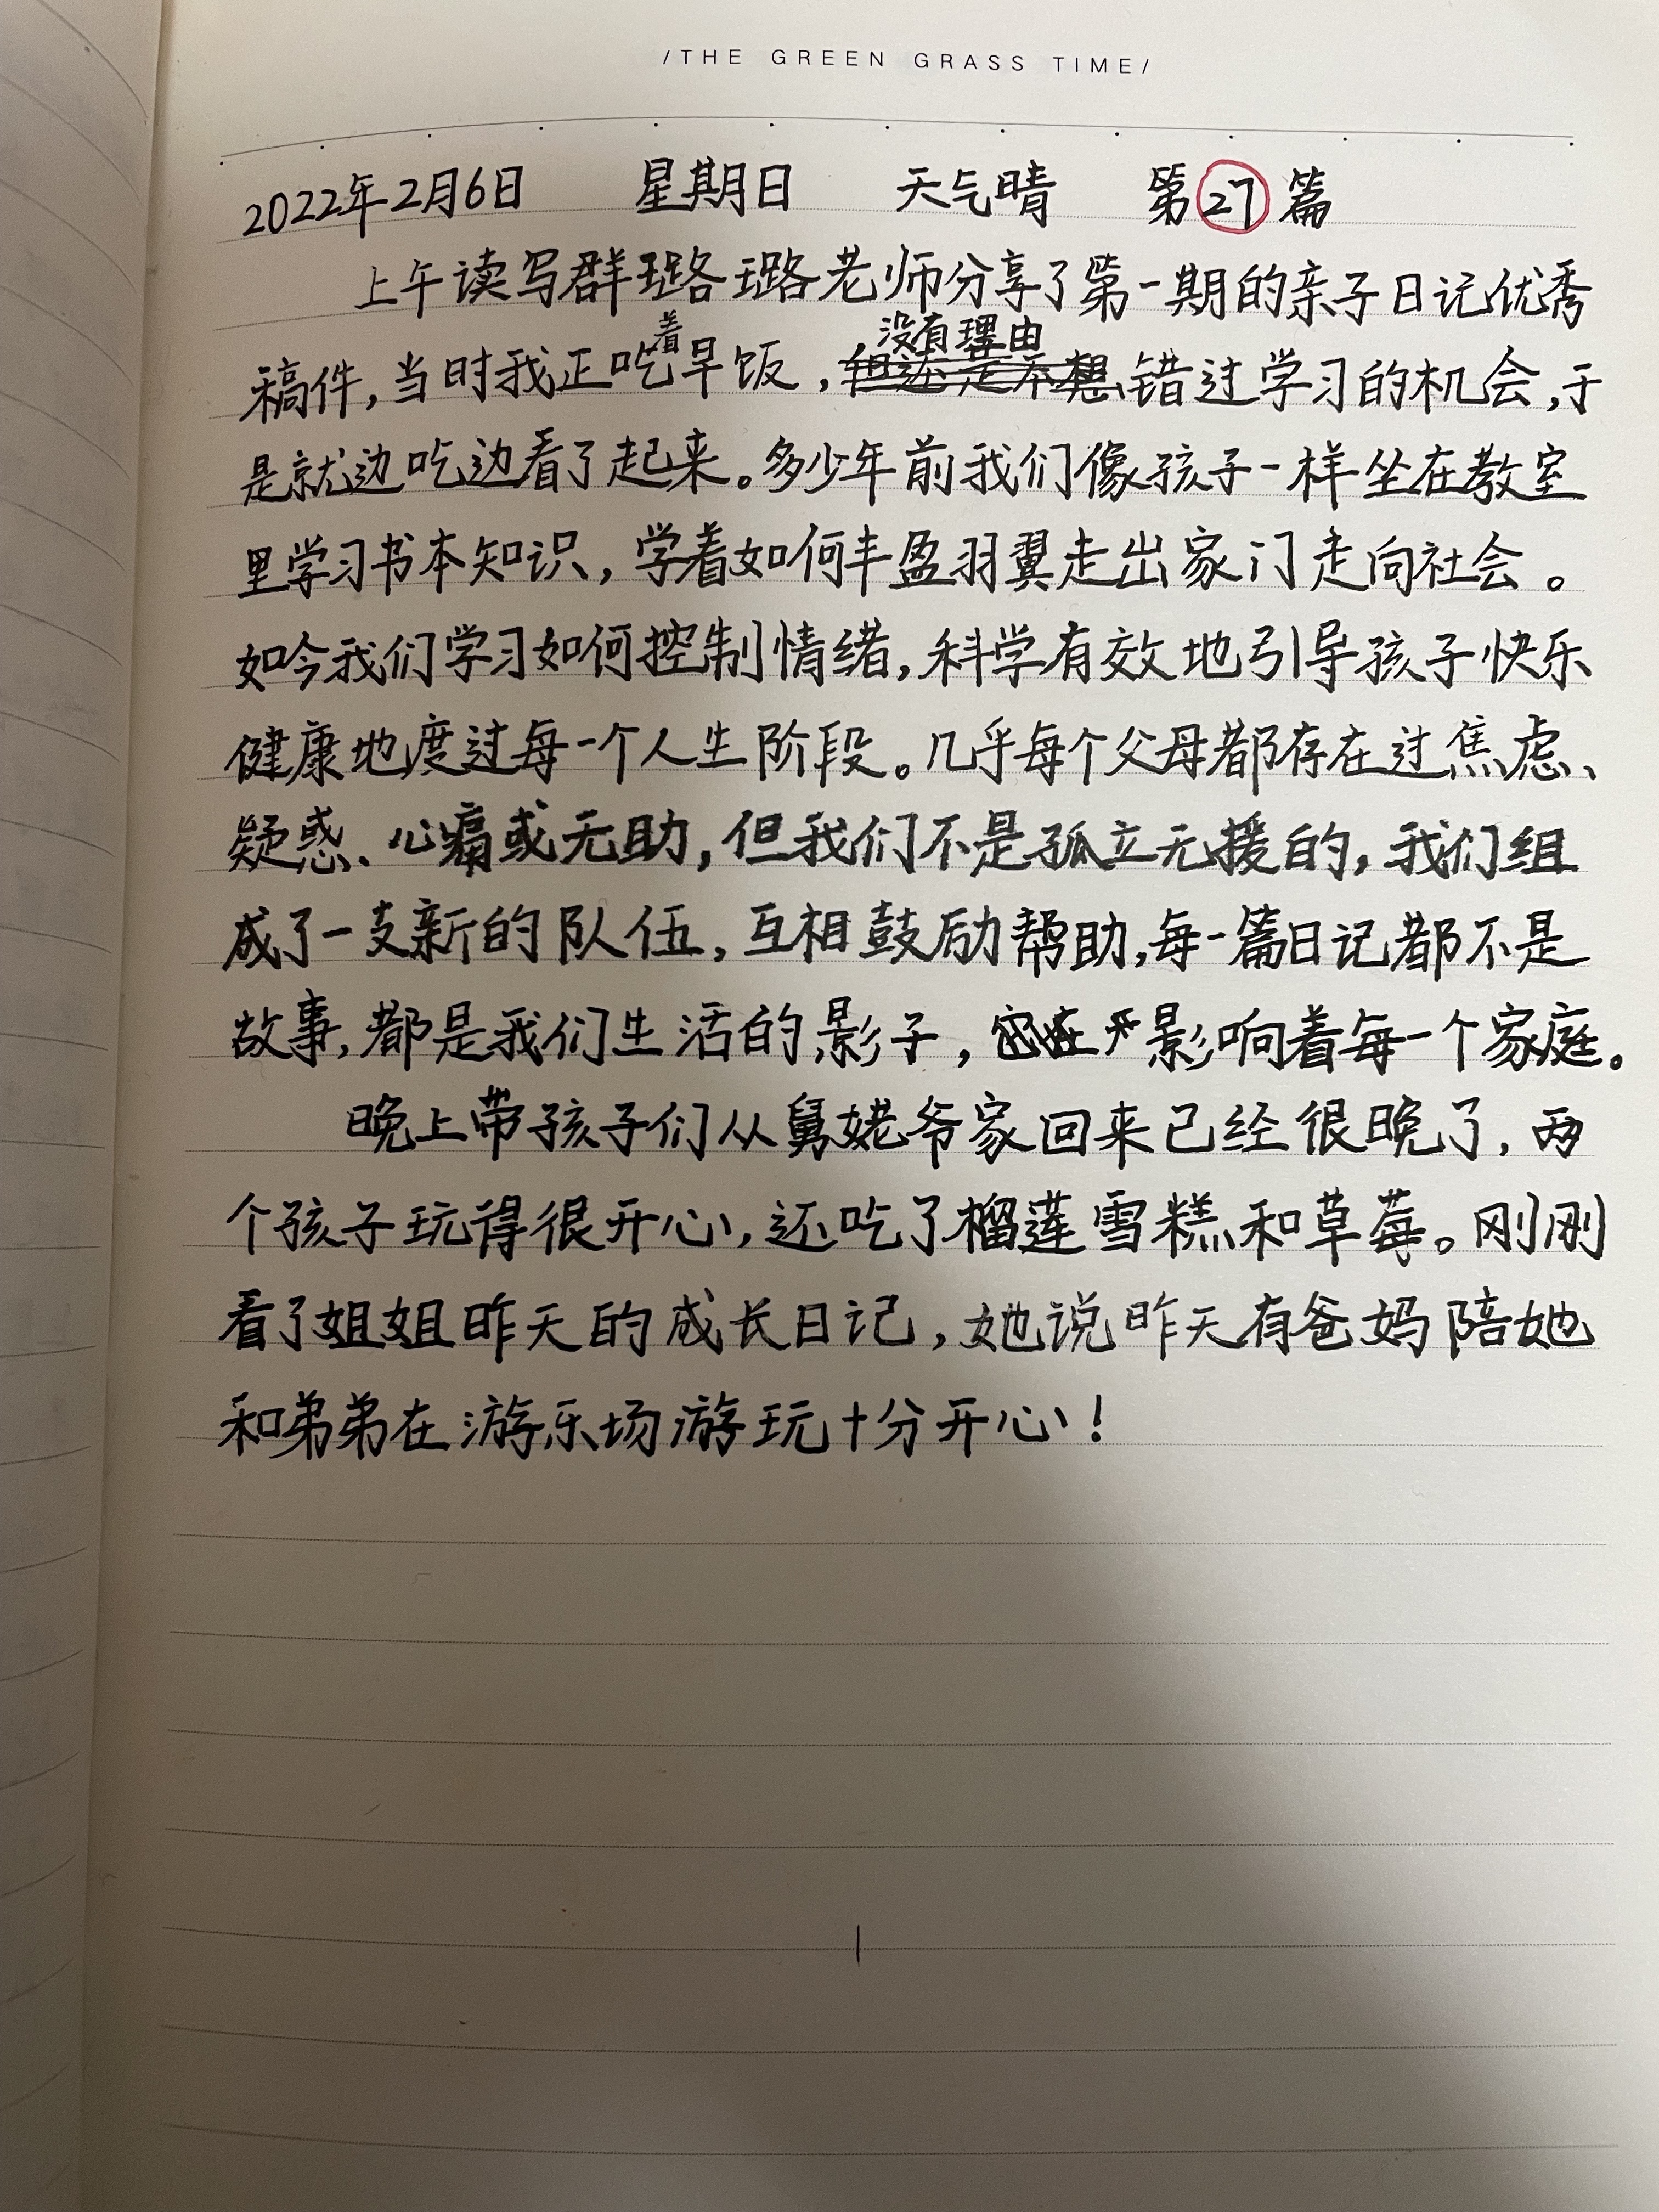 /THE GREEN GRASS TIME/
2022年2月6日 星期日 天气晴 第27篇
上午读写群璐璐老师分享了第一期的亲子日记优秀
稿件,当时我正吃着早饭,没有理由错过学习的机会,于
是就边吃边看了起来。多少年前我们像孩子一样坐在教室
里学习书本知识,学着如何丰盈羽翼走出家门走向社会。
如今我们学习如何控制情绪,科学有效地引导孩子快乐
健康地度过每一个人生阶段。几乎每个父母都存在过焦虑、
疑惑、心痛或无助,但我们不是孤立无援的,我们组
成了一支新的队伍,互相鼓励帮助,每一篇日记都不是
故事,都是我们生活的影子,影响着每一个家庭。
晚上带孩子们从舅姥爷家回来已经很晚了,两
个孩子玩得很开心,还吃了榴莲雪糕和草莓。刚刚
看了姐姐昨天的成长日记,她说昨天有爸妈陪她
和弟弟在游乐场游玩十分开心!